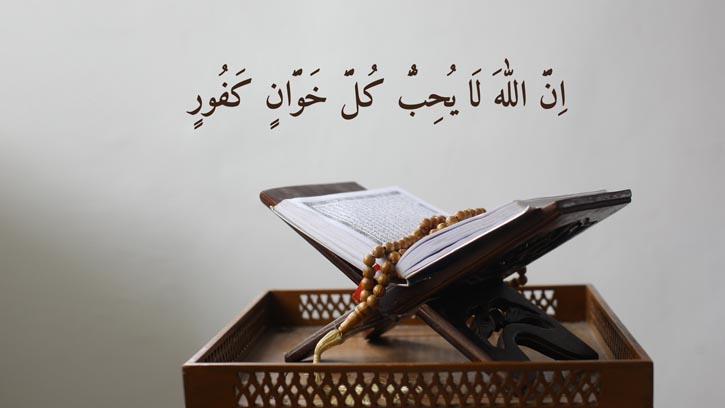 اِنَّ اللّٰهَ لَا يُحِبُّ كُلَّ خَوَّانٍ كَفُورٍ